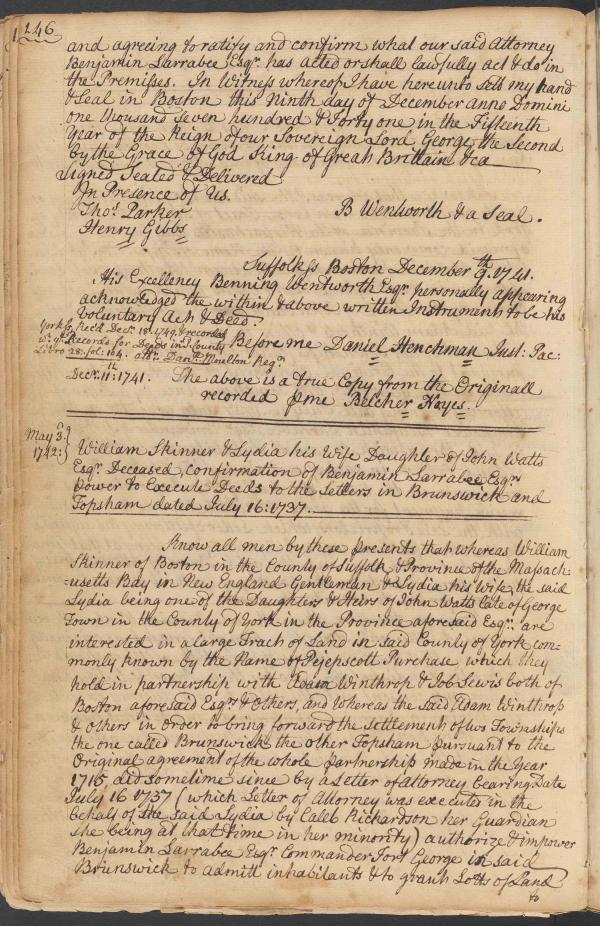 146
and agreeing to ratify and confirm what our said Attorney
Benjamin Larrabee Esqr. has acted or shall lawfully act & do in
the Premisses. In Witness whereof I have hereunto sett my hand
& Seal in Boston this Ninth day of December anno Domini
one thousand seven hundred & Forty one in the Fifteenth
Year of the Reign of our Sovereign Lord George the Second
by the Grace of God King of Great Brittain &ca
Signed Sealed & Delivered
In Presence of Us.
Thos. Parker
Henry Gibbs
B Wentworth & a Seal.
Suffolk ss Boston December 9th. 1741.
His Excellency Benning Wentworth Esqr. personally appearing
acknowledged the within & above written Instrument to be his
voluntary Act & Deed.
York ss. Rec'd Decr. 18. 1749. & recorded
wth. ye. Records for Deeds in sd. County
Libro 28. fol: 164. attr. Danll. Moulton Regr.
Before me Daniel Henchman Just. Pac:
Decr. 11th: 1741. The above is a true Copy from the Originall
recorded p me Belcher Noyes.
May 3d.
1742:
William Skinner & Lydia his Wife Daughter of John Watts
Esqr. Deceased, confirmation of Benjamin Larrabee Esqrs
power to Execute Deeds to the Setlers in Brunswick and
Topsham dated July 16: 1737.
Know all men by these Presents that whereas William
Skinner of Boston in the County of Suffolk & Province of the Massach-
=usetts Bay in New England Gentleman & Lydia his Wife, the said
Lydia being one of the Daughters & Heirs of John Watts late of George
Town in the County of York in the Province aforesaid Esqr. are
interested in a large Tract of Land in said County of York com=
monly known by the Name of Pejepscott Purchase which they
hold in partnership with Adam Winthrop & Job Lewis both of
Boston aforesaid Esqrs & Others, and Whereas the said Adam Winthrop
& others in order to bring forward the Settlement of two Townships
the one called Brunswick the other Topsham pursuant to the
Original agreement of the whole partnership made in the Year
1715 did sometime since by a Letter of Attorney bearing Date
July 16 1737 (which Letter of Attorney was executed in the
behalf of the said Lydia by Caleb Richardson her Guardian
She being at that time in her minority) authorize & impower
Benjamin Larrabee Esqr. Commander Fort George in said
Brunswick to admitt inhabitants & to grant Lotts of Land
to